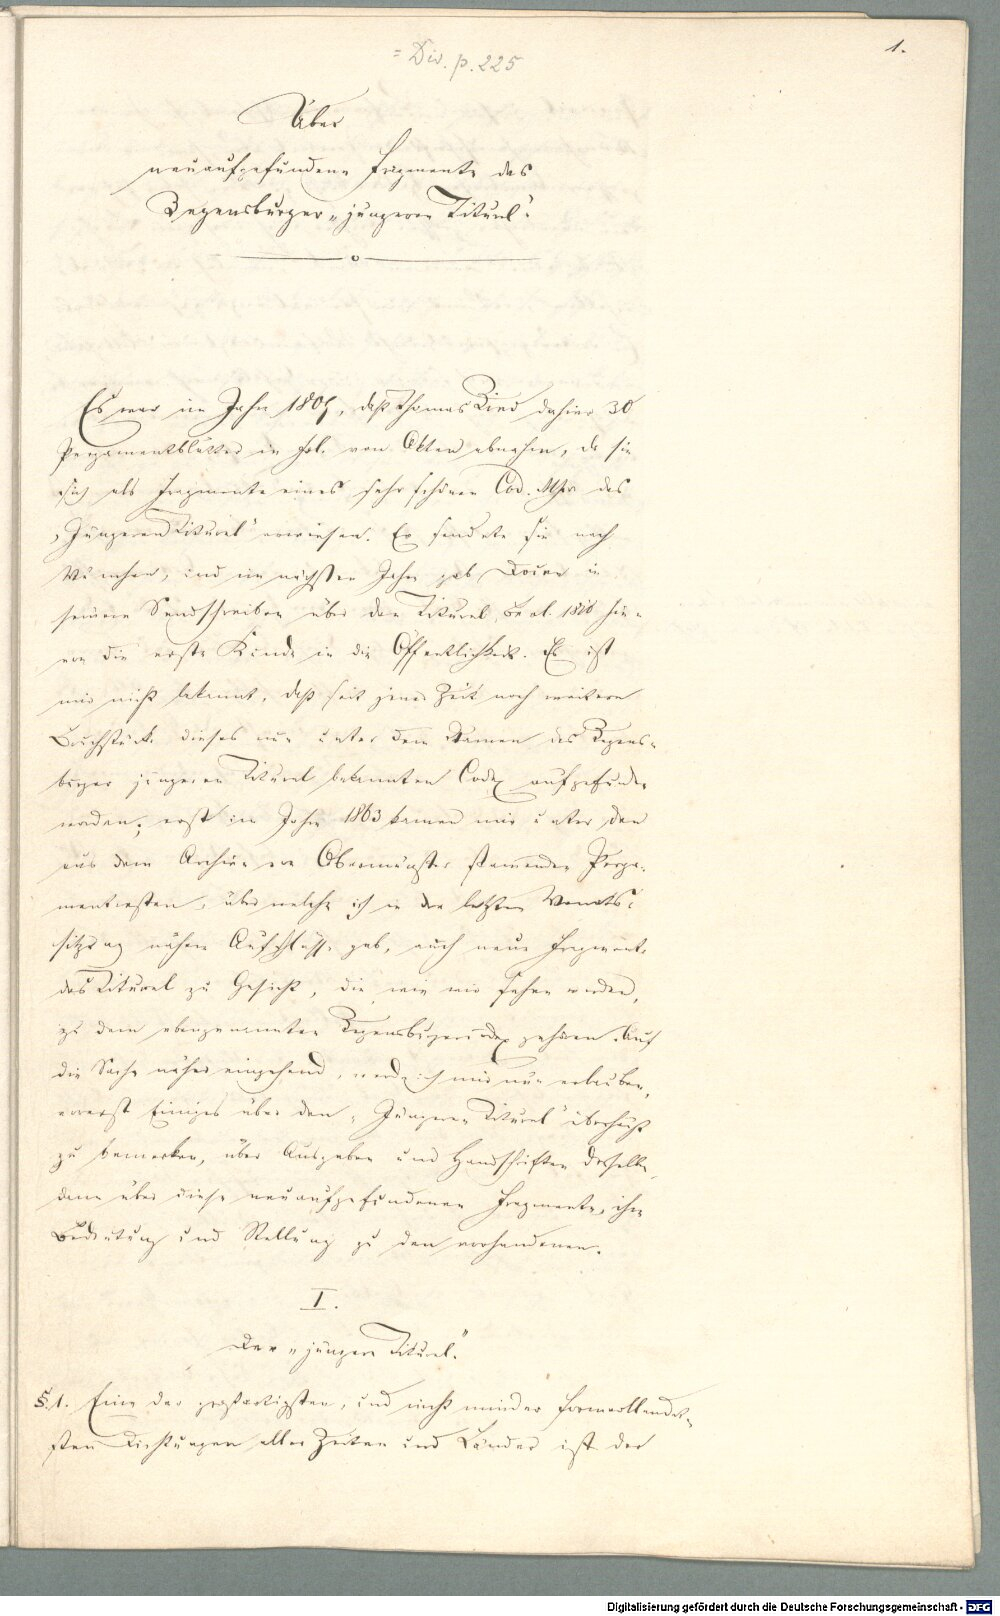 = Div. p. 225
1.
Über
neuaufgefundene Fragmente des
Regensburger „jüngeren Titurel“.
Es war im Jahre 1809, daß Thomas Ried dahier 30
Pergamentblätter in fol. von Akten abnahm, die sie
sich als Fragmente eines sehr schönen Cod. Mscr. des
„Jüngeren Titurel“ erwiesen. Er sendete sie nach
München, und im nächsten Jahre gab Docen in
seinem Sendschreiben über den Titurel, 1810 hie-
von die erste Kunde in die Öffentlichkeit. Es ist
mir nicht bekannt, daß seit jener Zeit noch weitere
Bruchstücke dieses nur unter dem Namen des Regens-
burger jüngeren Titurel bekannten Codex aufgefunden
worden; erst im Jahre 1863 kamen mir unter den
aus dem Archive von Obermünster stammenden Perga-
mentresten, über welche ich in der letzten Monats-
sitzung nähere Aufschlüsse gab, auch neue Fragmente
des Titurel zu Gesicht, die, wie wir sehen werden,
zu dem obengenannten Regensburgercodex gehören. Auf
die Sache näher eingehend, werde ich mir nun erlauben,
vorerst Einiges über den „Jüngeren Titurel“ überhaupt
zu bemerken, über Ausgaben und Handschriften desselben,
dann über diese neuaufgefundenen Fragmente, ihre
Bedeutung und Stellung zu den vorhandenen.
I.
Der „jüngere Titurel“.
§. 1. Eine der großartigsten, und nicht minder formvollendet-
sten Dichtungen aller Zeiten und Länder ist der
Digitalisierung gefördert durch die Deutsche Forschungsgemeinschaft - DFG